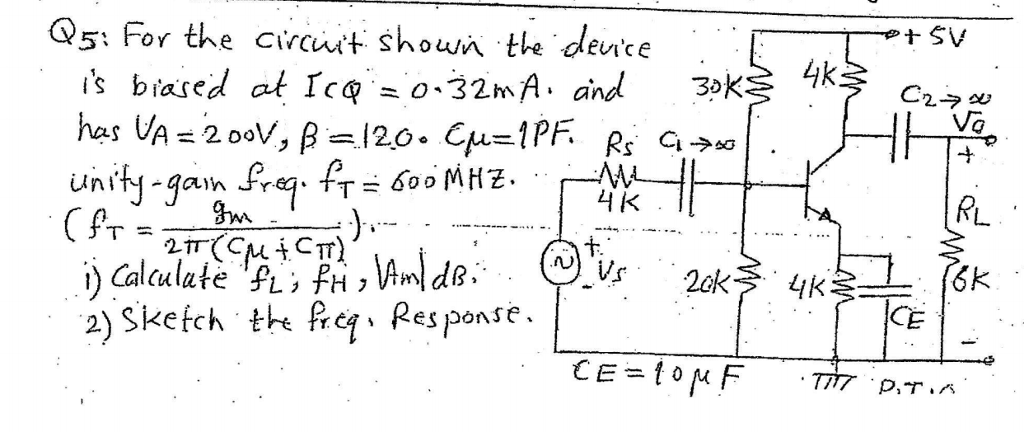 Q5: For the circuit shown the device
is biased at ICQ = 0.32mA. and
has VA = 200V, β = 120. Cμ=1PF.
unity-gain freq. fT = 600 MHZ.
( fT = gm / 2π(Cμ + Cπ) ).
i) Calculate fL, fH, |Am| dB.
2) Sketch the freq. Response.
+ 5V
30K
4K
C2→∞
Vo
+
Rs
C1→∞
4K
RL
+
Vs
-
20K
4K
CE
6K
-
CE = 10μF